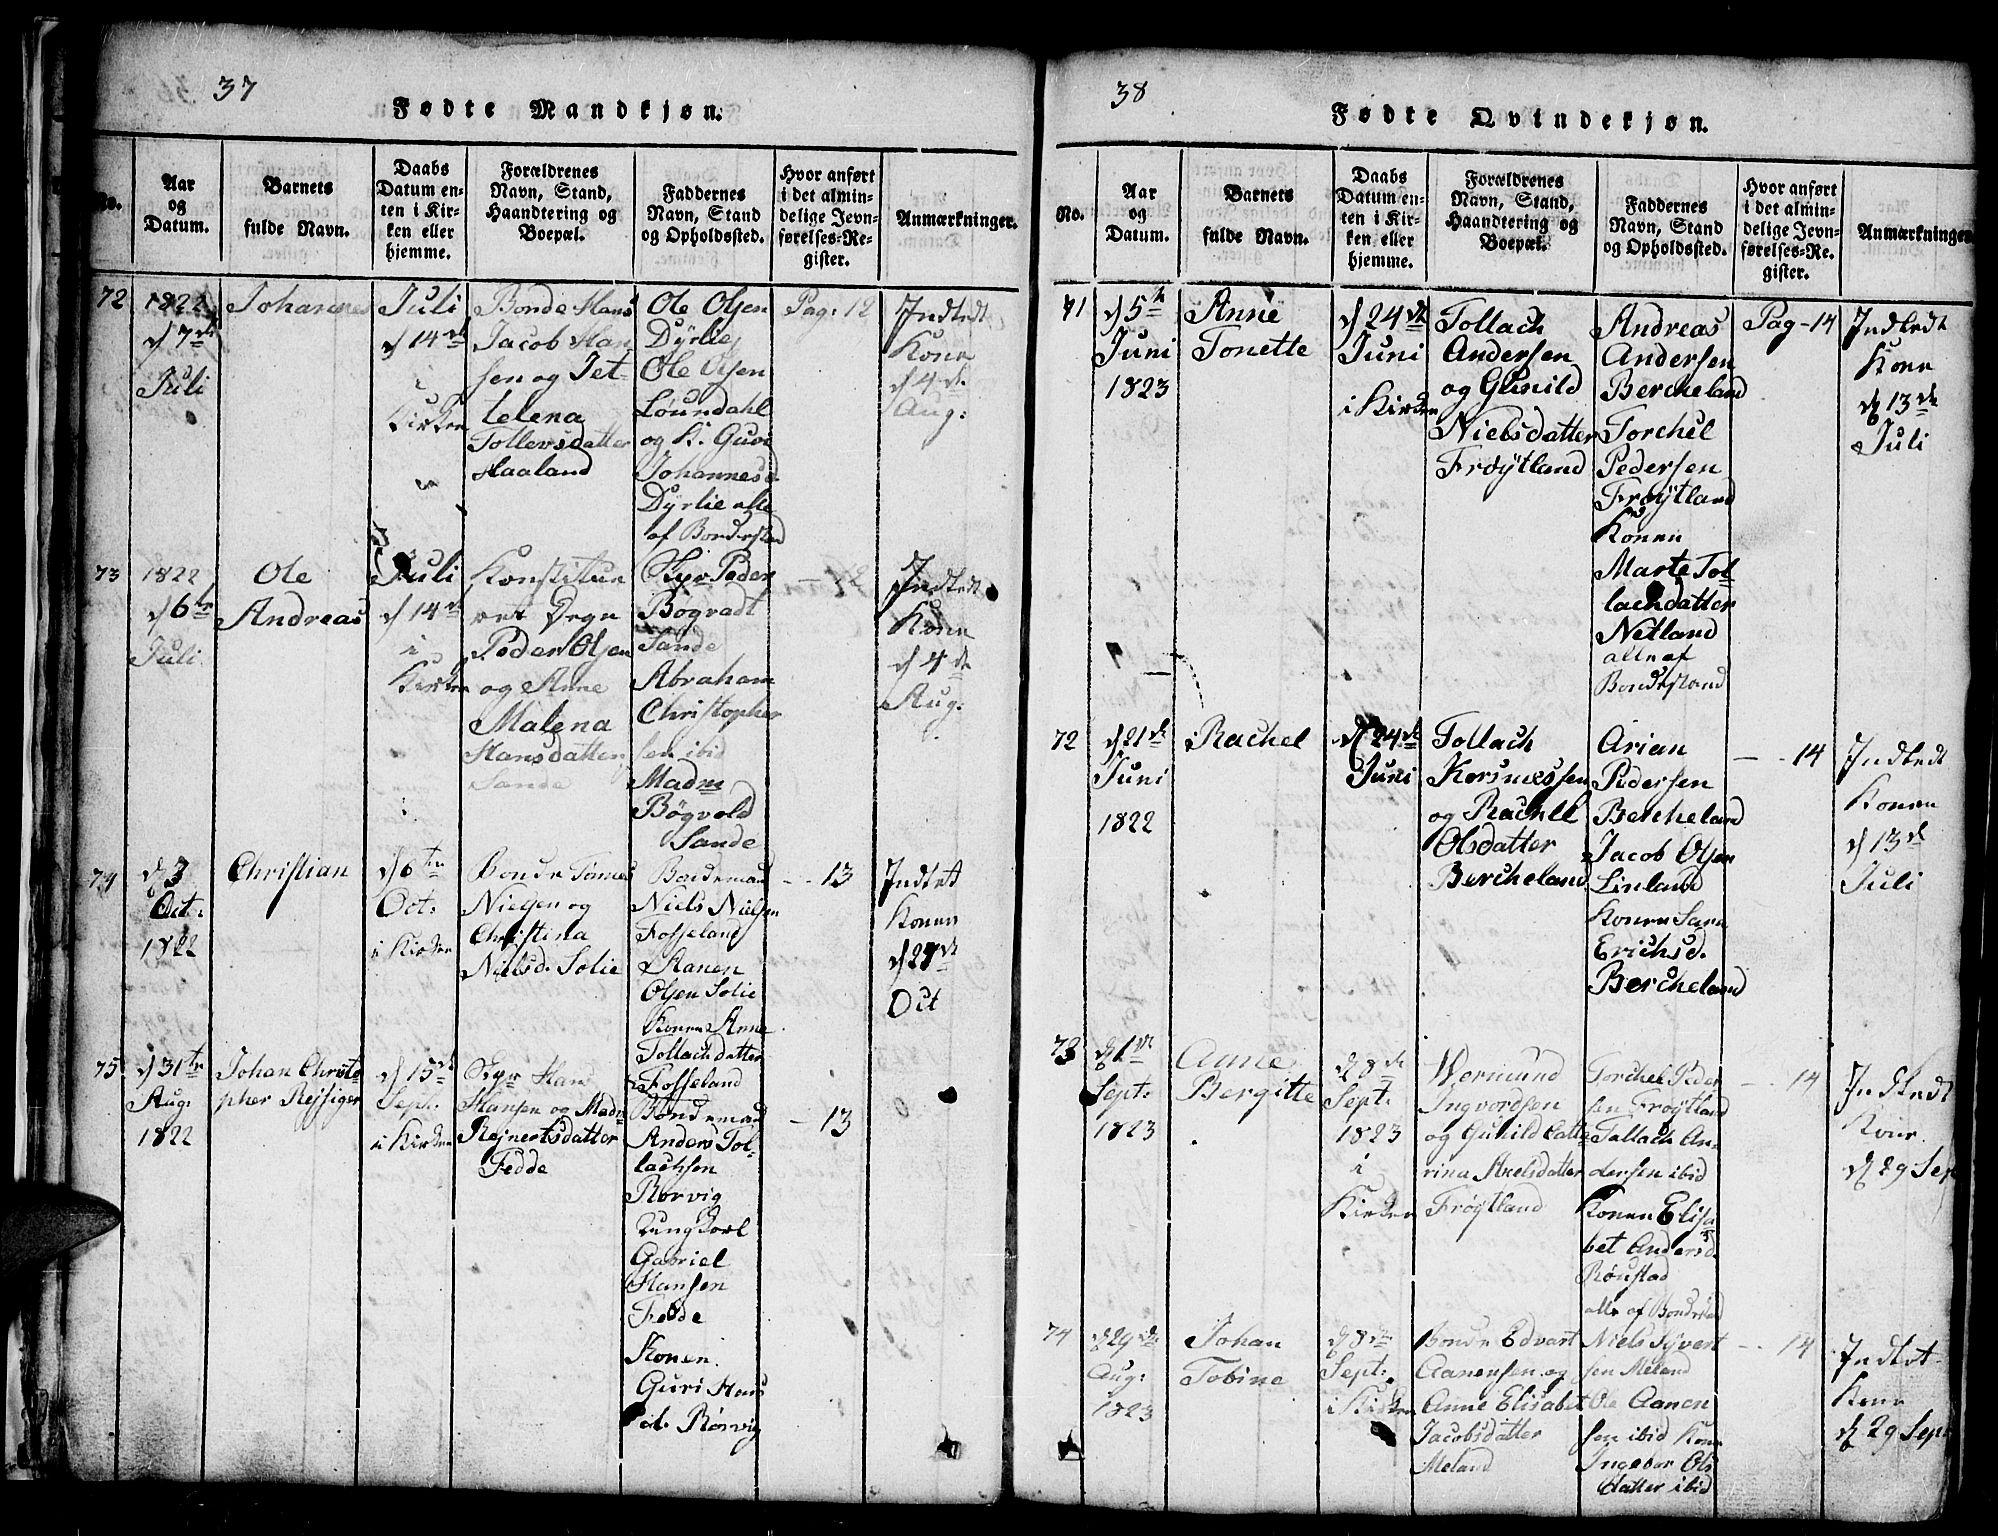 37
Fødte Mandkjøn.
No.
Aar
og
Datum.
Barnets
fulde Navn.
Daabs
Datum en-
ten i Kir-
ken eller
hjemme.
Forældrenes
Navn, Stand,
Haandtering og
Boepæl.
Faddernes
Navn, Stand
og Opholdssted.
Hvor anført
i det almin-
delige Jevn-
førelses-Re-
gister.
Anmærkninger.
72
1822
d 7de
Juli
Johannes
Juli
d 14de
i
Kirken
Bonde Hans
Jacob Han
sen og Jet-
telena
Tollevsdatter
Haaland
Ole Olsen
Dyrlie
Ole Olsen
Løundahl
og K. Guri
Johannesd
Dÿrlie alle
af Bondestand
Pag: 12
Indledt
Konen
d 4de
Aug:
73
1822
d 6te
Juli
Ole
Andreas
Juli
d 14de
i
Kirken
Konstitue
ret Degn
Peder Olsen
og Anne
Malena
Hansdatter
Sande
Peder
Bogvadt
Sande
Abraham
Christopher
sen ibid
Madm
Bögvold
Sande
— 12
Indledt
Konen
d 4de
Aug:
74
d 3
Oct:
1822
Christian
d 6te
Oct:
i Kirken
Bonde Tønnes
Nielsen og
Christina
Nielsd. Solie
Bondemand
Niels Nielsen
Fosseland
Aanen
Olsen Solie
Konen Anne
Tollachdatter
Fosseland
— 13
Indlet
Konen
d 27de
Oct
75
d 31te
Aug:
1822
Johan Christo
pher Rejsiger
d 15de
Sept:
i Kirken
Hans
Hansen og Madm
Rejnertsdatter
Fedde
Bondemand
Anders Tol-
lachsen
Rørvig
Ungkarl
Gabriel
Hansen
Fedde
Konen
Guri Hans
d. Rörvig
— 13
38
Fødte Qvindekjøn.
No.
Aar
og
Datum.
Barnets
fulde Navn.
Daabs
Datum en-
ten i Kir-
ken eller
hjemme.
Forældrenes
Navn, Stand,
Haandtering og
Boepæl.
Faddernes
Navn, Stand
og Opholdssted.
Hvor anført
i det almin-
delige Jevn-
førelses-Re-
gister.
Anmærkninger
71
d 5te
Juni
1823
Anne
Tonette
d 24de
Juni
i Kirken
Tollach
Andersen
og Gunild
Nielsdatter
Frøÿtland
Andreas
Andersen
Bercheland
Torchel
Pedersen
Frøÿtland
Konen
Marte Tol
lachdatter
Netland
alle af
Bondestand
Pag - 14
Indledt
Konen
d 13de
Juli
72
d 21de
Juni
1822
Rachel
d 24de
Juni
Tollach
Korsmessen
og Rachel
Olsdatter
Bercheland
Arian
Pedersen
Bercheland
Jacob Olsen
Linland
Konen Sara
Erichsd.
Bercheland
— 14
Indledt
Konen
d 13de
Juli
73
d 1de
Sept:
1823
Anne
Bergitte
d 8de
Sept:
1823
i
Kirken
Wermund
Ingvordsen
og Gunild Catte
rina Axelsdatter
Frøÿtland
Torchel Peder
sen Frøÿtland
Tallach An-
dersen ibid
Konen Elisa
bet Andersd
Rönstad
alle af Bondestand
— 14
Indledt
Konen
d 29 Sept
74
d 29de
Aug:
1823
Johan
Tobine
d 8de
Sept:
i Kirken
Bonde Edvart
Aanensen og
Anne Elisabet
Jacobsdatter
Meland
Niels Syvert
sen Meland
Ole Aanen
sen ibid Konen
Ingebor Ols
datter ibid
— 14
Indlet
Konen
d 29 Sept